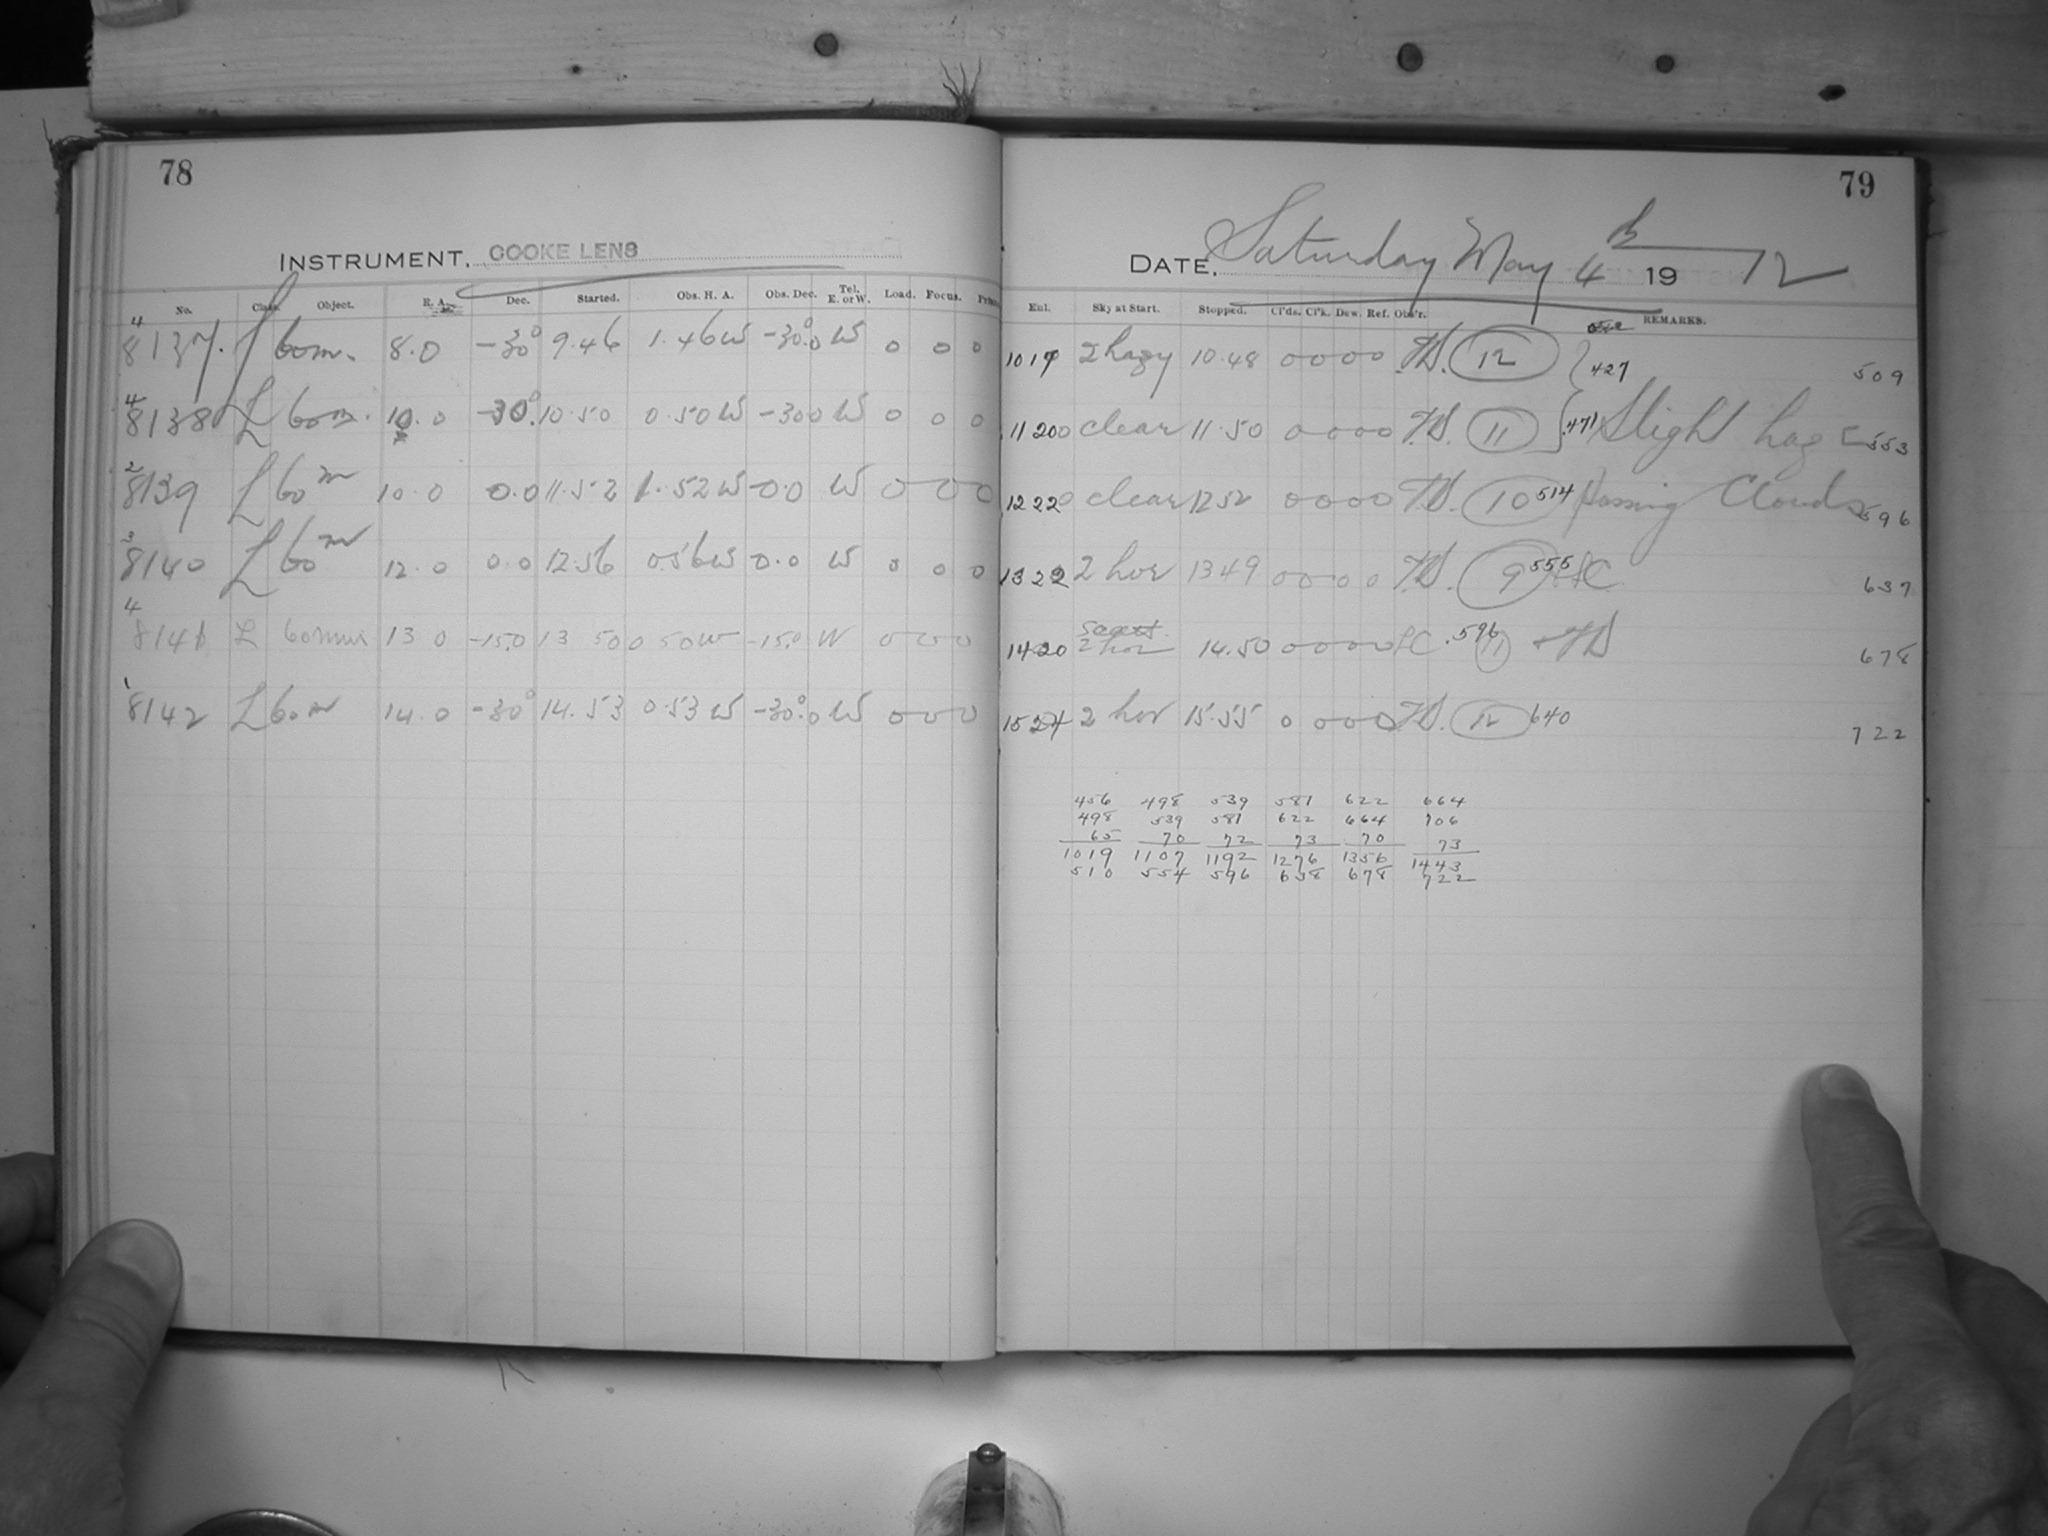 78
INSTRUMENT. COOKE LENS
No. Class. Object. R. A. Dec. Started. Obs. H. A. Obs. Dec. Tel. E. or W. Load. Focus.
4
8137. L 60m. 8.0 -30° 9.46 1.46W -30°.0 W 0 0 0
4
8138 L 60m. 10.0 -30°. 10.50 0.50W -300 W 0 0 0
2
8139 L 60m 10.0 0.0 11.52 1.52W -0.0 W 0 0 0
3
8140 L 60m 12.0 0.0 12.56 0.56W 0.0 W 0 0 0
4
8141 L 60min 13 0 -15.0 13 50 0 50W -15.0 W 0 0 0
1
8142 L 60m 14.0 -30° 14.53 0.53W -30°.0 W 0 0 0
79
DATE, Saturday May 4th 1912
Ent. Sky at Start. Stopped. Cl'ds. Cl'k. Dew. Ref. Obs'r. REMARKS.
1017 2 hazy 10.48 0000 TS. 12 427 509
1120 clear 11.50 0000 TS. 11 .471 Slight haze 553
1222 clear 1252 0000 TS. 10 514 Passing Clouds 596
1322 2 hor 1349 0000 TS. 9 555 637
1420 2 hor 14.50 0000 LC .596 11 + TS 678
1524 2 hor 15.55 0 000 TS. 12 640 722
456 498 539 581 622 664
498 539 581 622 664 706
65 70 72 73 70 73
1019 1107 1192 1276 1356 1443
510 554 596 638 678 722